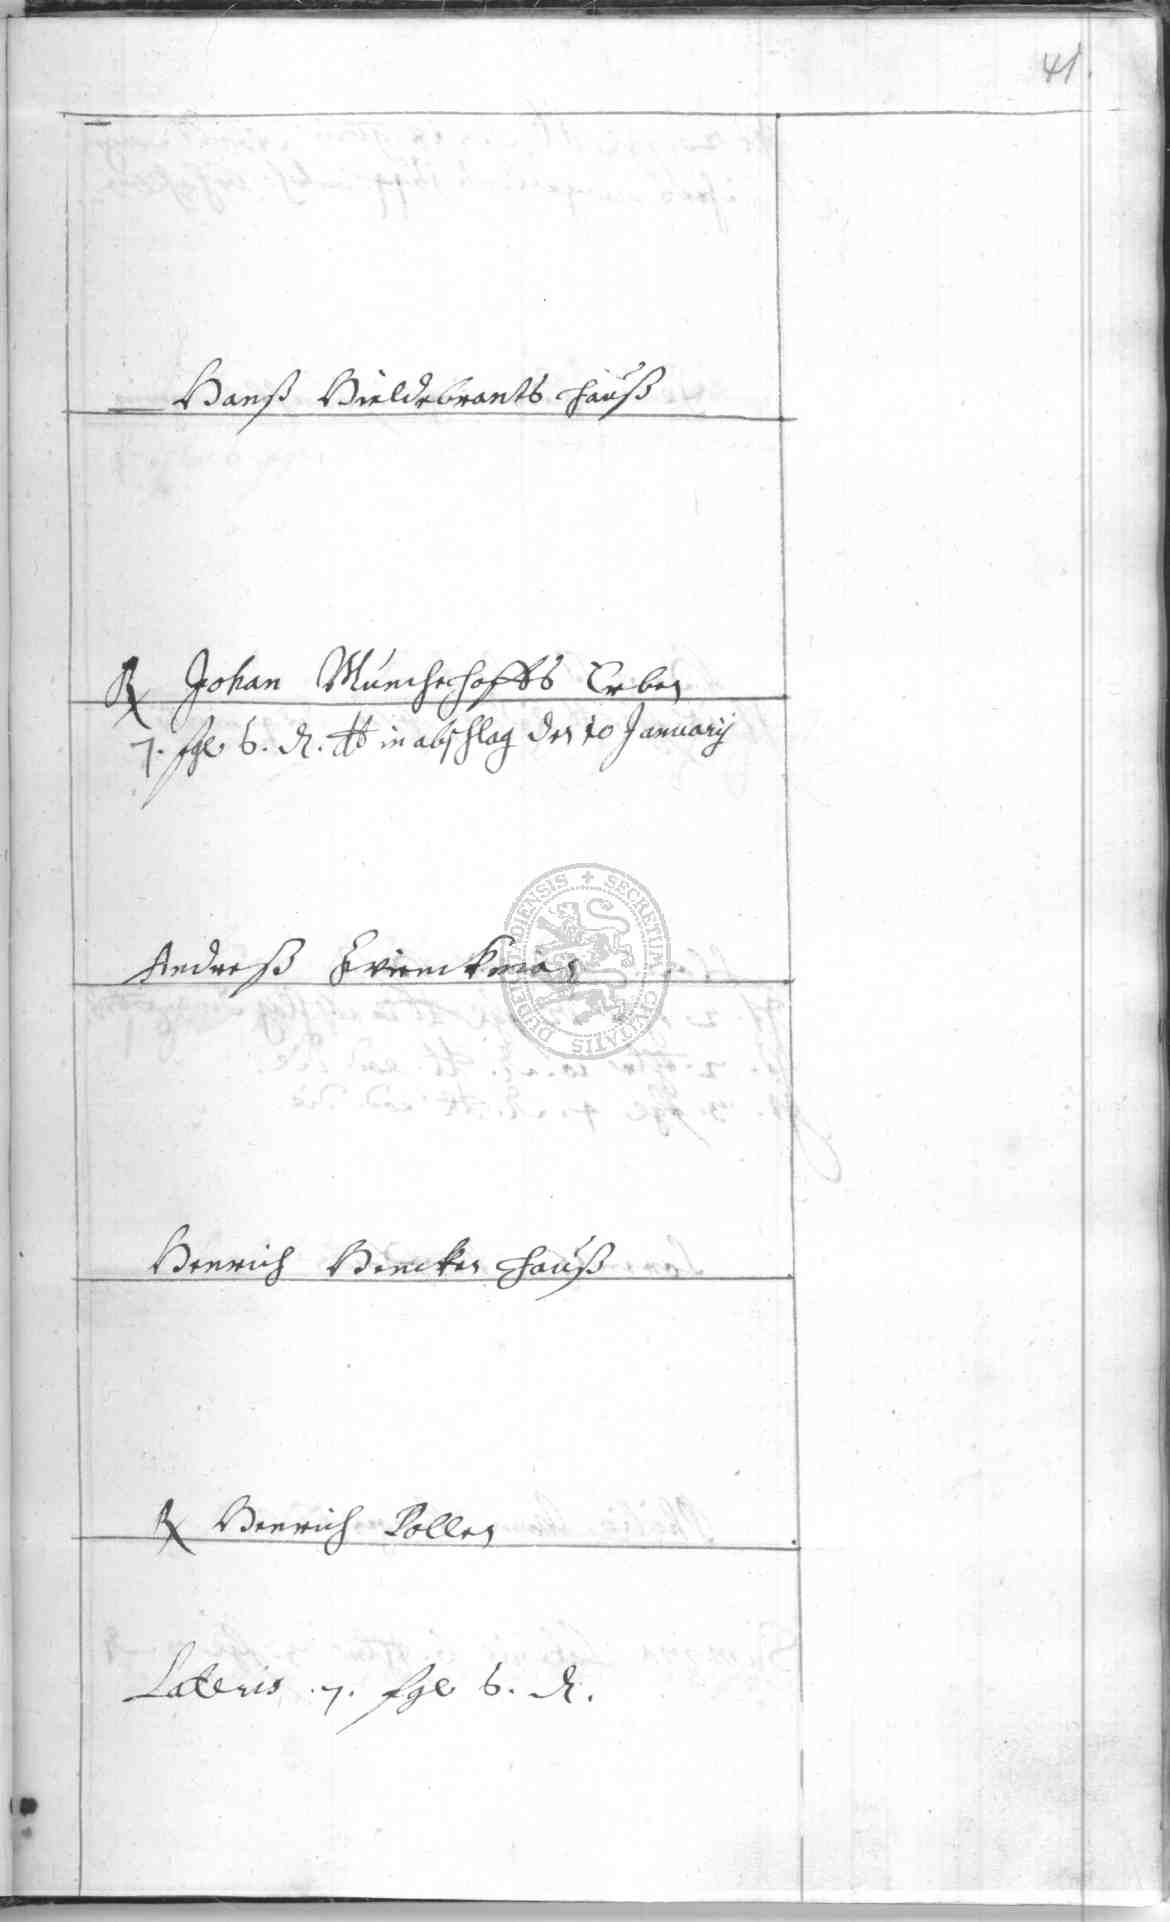 41.
Hanß Hieldebrants hauß
Rx Johan Münchehoffs Erben
7. sgl 6. d. dt in abschlag den 10 Januarij
Andreß
Henrich Hencken hauß
Rx Henrich Pollen
Lateris 7. sgl 6. d.
SECRETUM CIVITATIS DUDERSTADIENSIS